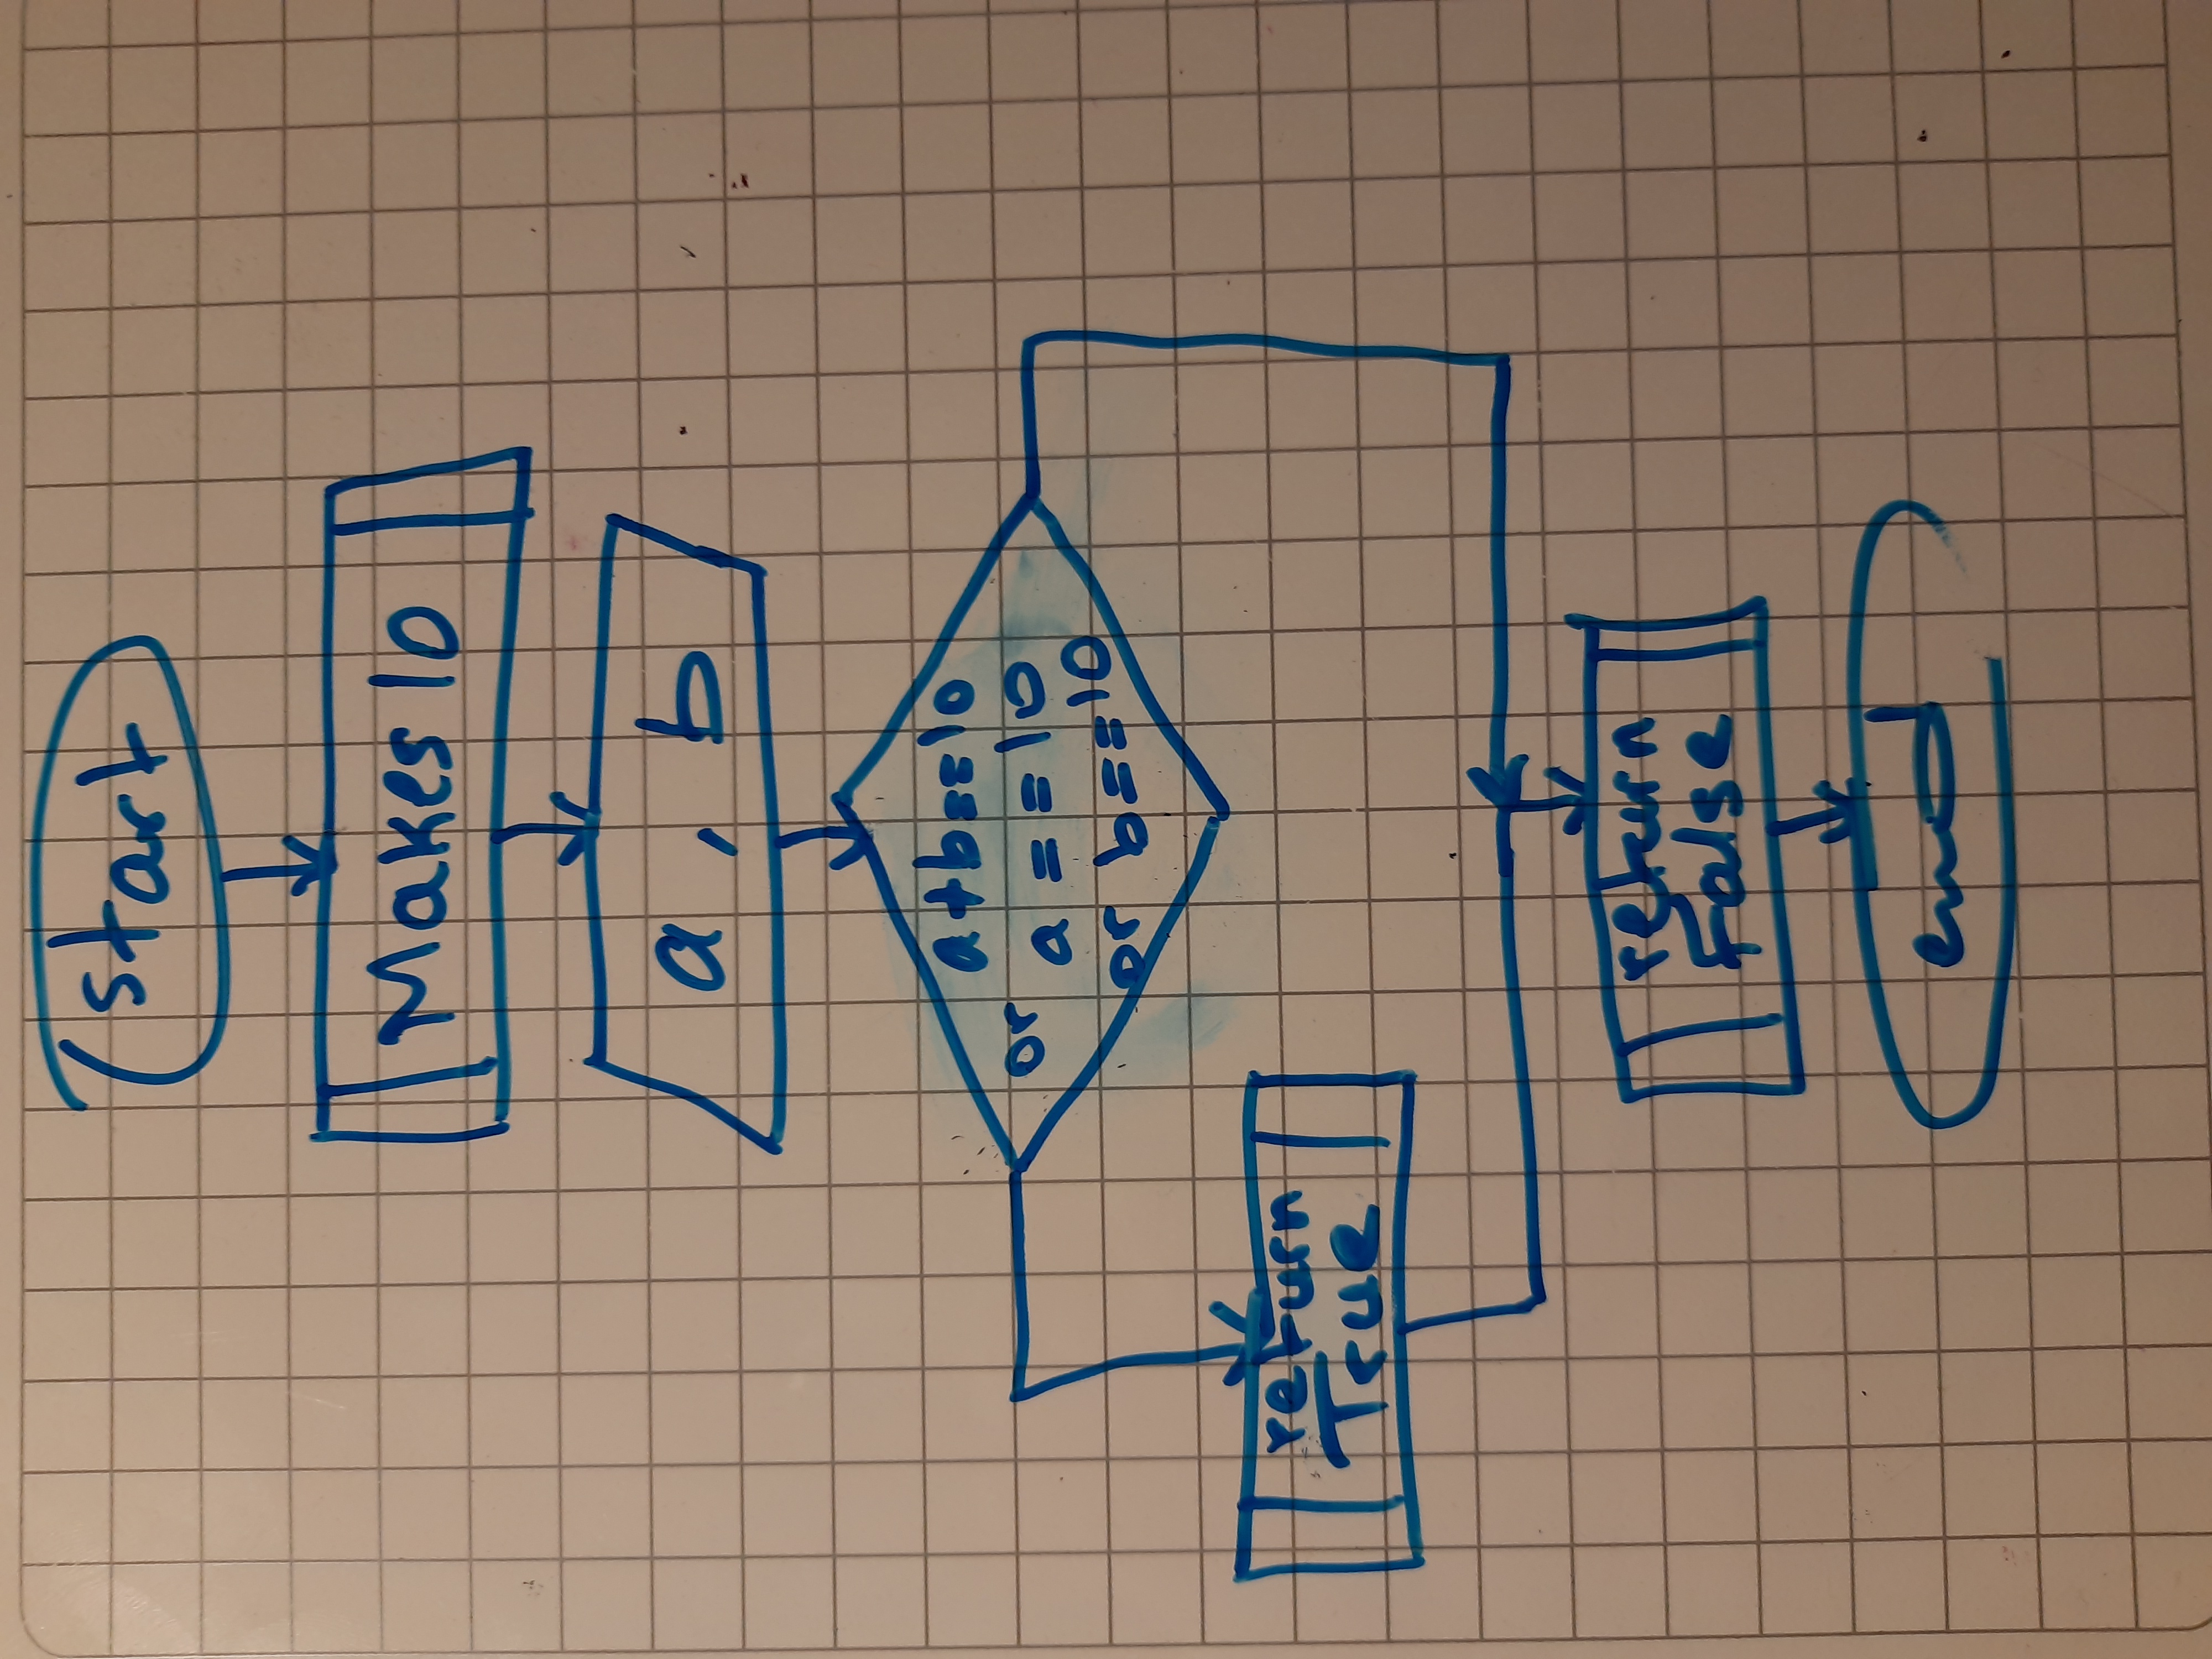 start
Makes 10
a , b
a+b==10
or a ==10
or b==10
return
True
return
False
end